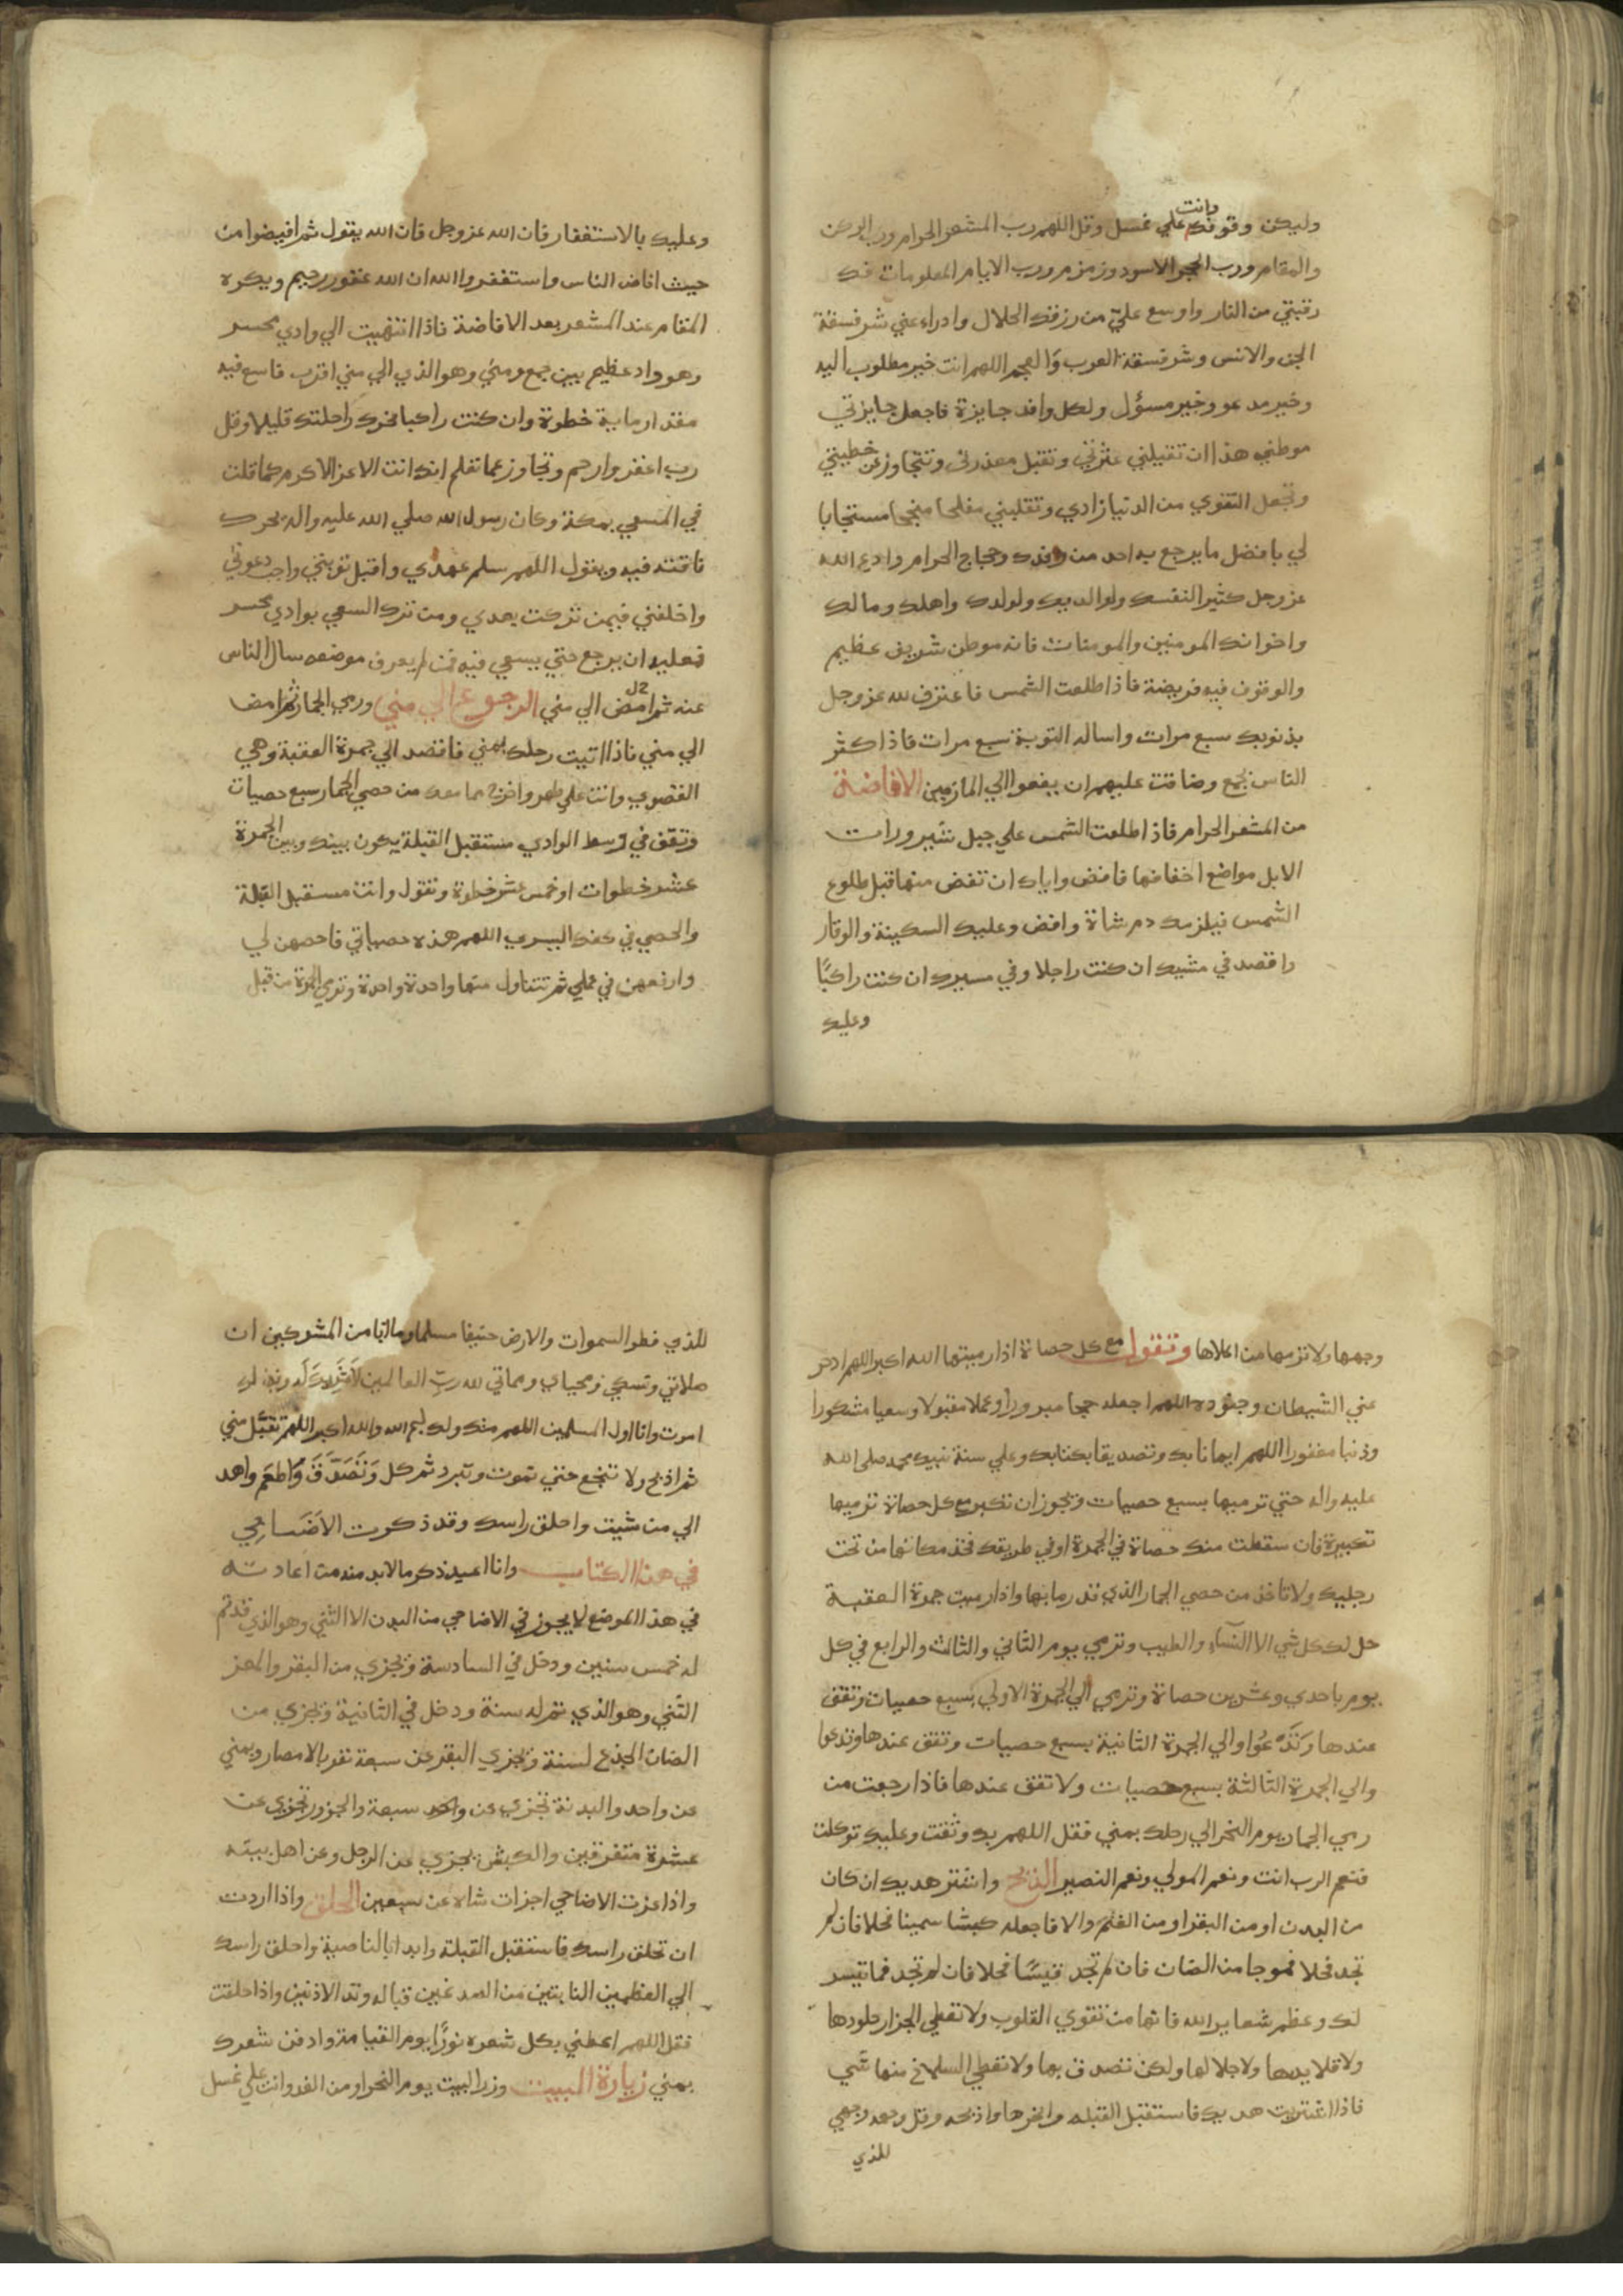 وليكن وقوفك وانت علي غسل وقل اللهم رب المشعر الحرام ورب الركن
والمقام ورب الحجر الاسود وزمزم ورب الايام المعلومات فك
رقبتي من النار واوسع علي من رزقك الحلال وادراء عني شر فسقة
الجن والانس وشر فسقة العرب والعجم اللهم انت خير مطلوب اليه
وخير مدعو وخير مسؤل ولكل وافد جايزة فاجعل جايزتي
موطني هذا ان تقيلني عثرتي وتقبل معذرتي وتتجاوز عن خطيئتي
وتجعل التقوي من الدنيا زادي وتقلبني مفلحا منجحا مستجابا
لي بافضل ما يرجع به احد من وفدك وحجاج الحرام وادع الله
عز وجل كثيرا لنفسك ولوالديك ولولدك واهلك ومالك
واخوانك المومنين والمومنات فانه موطن شريف عظيم
والوقوف فيه فريضة فاذا طلعت الشمس فاعترف لله عز وجل
بذنوبك سبع مرات واساله التوبة سبع مرات فاذا كثر
الناس بجمع وضاقت عليهم ان يفعوا الي المازمين الافاضة
من المشعر الحرام فاذا طلعت الشمس علي جبل ثبير ورات
الابل مواضع اخفافها فافض واياك ان تفض منها قبل طلوع
الشمس فيلزمك دم شاة وافض وعليك السكينة والوقار
واقصد في مشيك ان كنت راجلا وفي مسيرك ان كنت راكبًا
وعليك
وعليك بالاستغفار فان الله عز وجل فان الله يقول ثم افيضوا من
حيث افاض الناس واستغفروا الله ان الله غفور رحيم ويكره
المقام عند المشعر بعد الافاضة فاذا انتهيت الي وادي محسر
وهو واد عظيم بين جمع ومني وهو الذي الي مني اقرب فاسع فيه
مقدار ماية خطوة وان كنت راكبا فحرك راحلتك قليلا وقل
رب اغفر وارحم وتجاوز عما تعلم انك انت الاعز الاكرم كما قلت
في المسعي بمكة وكان رسول الله صلي الله عليه واله يحرك
ناقته فيه ويقول اللهم سلم عهدي واقبل توبتي واجب دعوتي
واخلفني فيمن تركت بعدي ومن ترك السعي بوادي محسر
فعليه ان يرجع حتي يسعي فيه فمن لم يعرف موضعه سال الناس
عنه ثم امض الي مني الرجوع الي مني ورمي الجمار ثم امض
الي مني فاذا اتيت رحلك بمني فاقصد الي جمرة العقبة وهي
القصوي وانت علي طهر واخرج مما معك من حصي الجمار سبع حصيات
وتقف في وسط الوادي مستقبل القبلة يكون بينك وبين الجمرة
عشر خطوات او خمس عشر خطوة وتقول وانت مستقبل القبلة
والحصي في كفك اليسري اللهم هذه حصياتي فاحصهن لي
وارفعهن في عملي ثم تتناول منها واحدة واحدة وترمي الجمرة من قبل
وجهها ولا ترمها من اعلاها وتقول مع كل حصاة اذا رميتها الله اكبر اللهم ادحر
عني الشيطان وجنوده اللهم اجعله حجا مبرورا وعملا مقبولا وسعيا مشكورا
وذنبا مغفورا اللهم ايمانا بك وتصديقا بكتابك وعلي سنة نبيك محمد صلي الله
عليه واله حتي ترميها بسبع حصيات ويجوز ان تكبر مع كل حصاة ترميها
تكبيرة فان سقطت منك حصاة في الجمرة او في طريقك فخذ مكانها من تحت
رجليك ولا تاخذ من حصي الجمار الذي قد رما بها واذا رميت جمرة العقبة
حل لك كل شي الا النسآء والطيب وترمي يوم الثاني والثالث والرابع في كل
يوم باحدي وعشرين حصاة وترمي الي الجمرة الاولي بسبع حصيات وتقف
عندها وتدعوا والي الجمرة الثانية بسبع حصيات وتقف عندها وتدعوا
والي الجمرة الثالثة بسبع حصيات ولا تقف عندها فاذا رجعت من
رمي الجمار يوم النحر الي رحلك بمني فقل اللهم بك وثقت وعليك توكلت
فنعم الرب انت ونعم المولي ونعم النصير الذبح واشتر هديك ان كان
من البدن او من البقر او من الغنم والا فاجعله كبشا سمينا فحلا فان لم
تجد فحلا فموجا من الضان فان لم تجد تيسًا فحلا فان لم تجد فما تيسر
لك وعظم شعاير الله فانها من تقوي القلوب ولا تعطي الجزار جلودها
ولا قلايدها ولا جلالها ولكن تصدق بها ولا تعطي السلاخ منها شي
فاذا اشتريت هديك فاستقبل القبله وانحرها واذبحه وقل وجهت وجهي
للذي
للذي فطر السموات والارض حنيفا مسلما وما انا من المشركين ان
صلاتي ونسكي ومحياي ومماتي لله ربّ العالمين لا شريك له وبذلك
امرت وانا اول المسلمين اللهم منك ولك بسم الله والله اكبر اللهم تقبّل مني
ثم اذبح ولا تنخع حتي تموت وتبرد ثم كل وتصدّق واطعم واهد
الي من شيت واحلق راسك وقد ذكرت الاضاحي
في هذا الكتاب وانا اعيد ذكر ما لا بد منه من اعادته
في هذا الموضع لا يجوز في الاضاحي من البدن الا الثني وهو الذي قد تم
له خمس سنين ودخل في السادسة ويجزي من البقر والمعز
الثني وهو الذي تم له سنة ودخل في الثانية ويجزي من
الضان الجذع لسنة ويجزي البقر عن سبعة نفر بالامصار وبمني
عن واحد والبدنة تجزي عن واحد سبعة والجزور تجزي عن
عشرة متفرقين والكبش يجزي عن الرجل وعن اهل بيته
واذا عزت الاضاحي اجزات شاة عن سبعين الحلق واذا اردت
ان تحلق راسك فاستقبل القبلة وابدا بالناصية واحلق راسك
الي العظمين النابتين من الصدغين قبالة وتد الاذنين واذا حلقت
فقل اللهم اعطني بكل شعره نورًا يوم القيامة وادفن شعرك
بمني زيارة البيت وزر البيت يوم النحر او من الغد وانت علي غسل